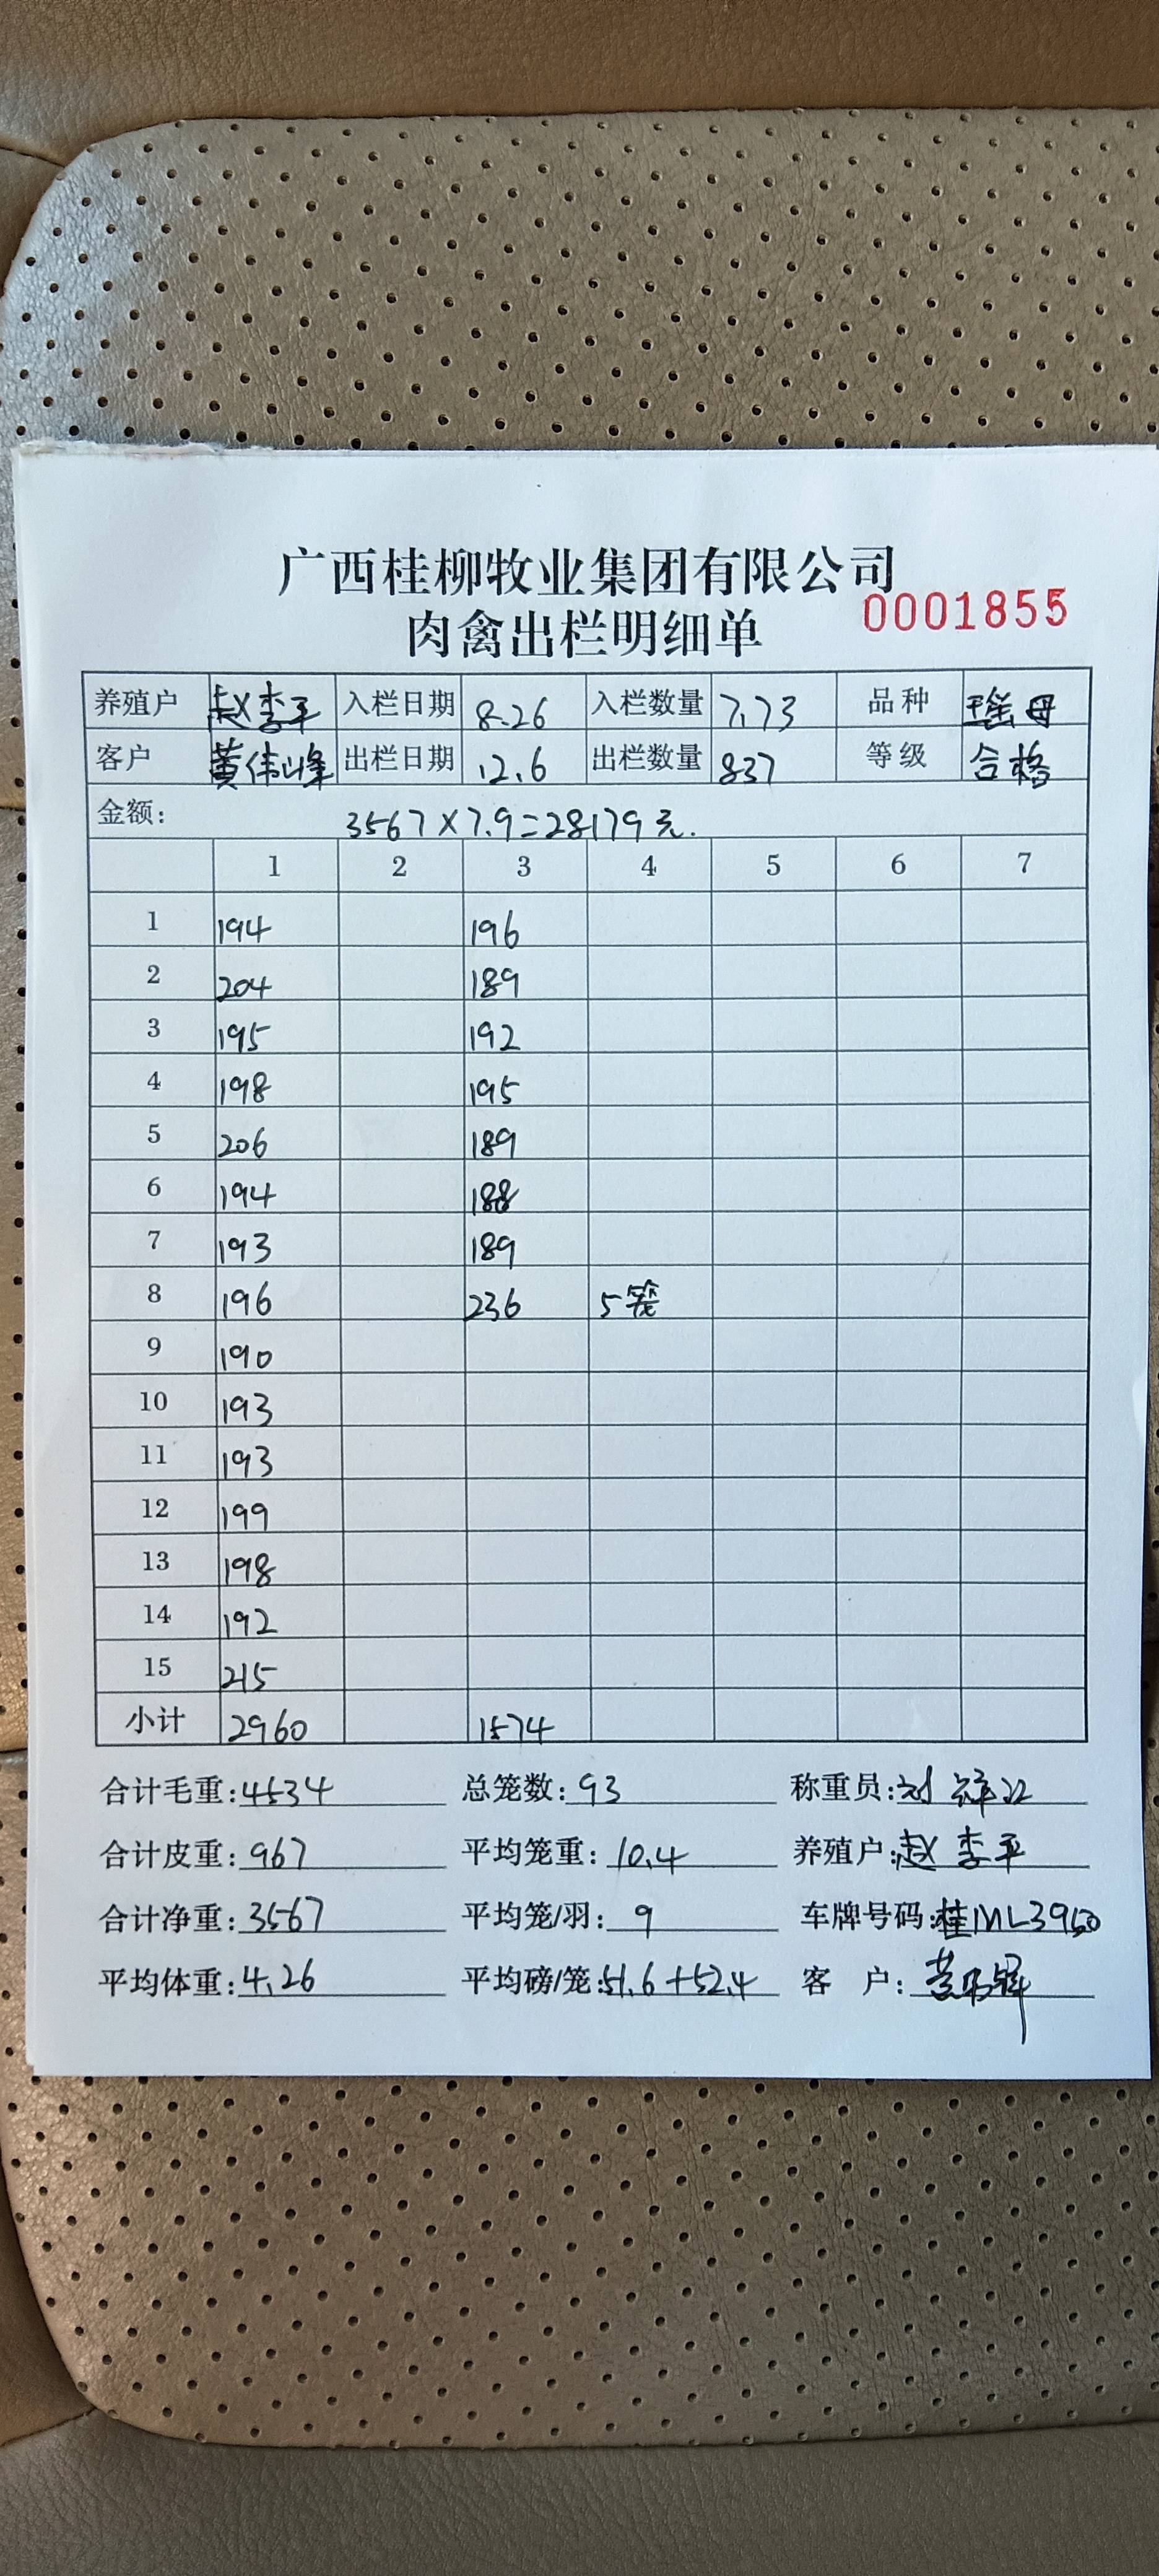 广西桂柳牧业集团有限公司
肉禽出栏明细单 0001855
养殖户 赵李平 入栏日期 8.26 入栏数量 7.73 品种 瑶母
客户 黄伟峰 出栏日期 12.6 出栏数量 837 等级 合格
金额: 3567×7.9=28179元.
1 2 3 4 5 6 7
1 194 196
2 204 189
3 195 192
4 198 195
5 206 189
6 194 188
7 193 189
8 196 236 5笼
9 190
10 193
11 193
12 199
13 198
14 192
15 215
小计 2960 1574
合计毛重:4534 总笼数:93 称重员:刘
合计皮重:967 平均笼重:10.4 养殖户:赵李平
合计净重:3567 平均笼/羽:9 车牌号码:桂ML3950
平均体重:4.26 平均磅/笼:51.6+52.4 客 户: